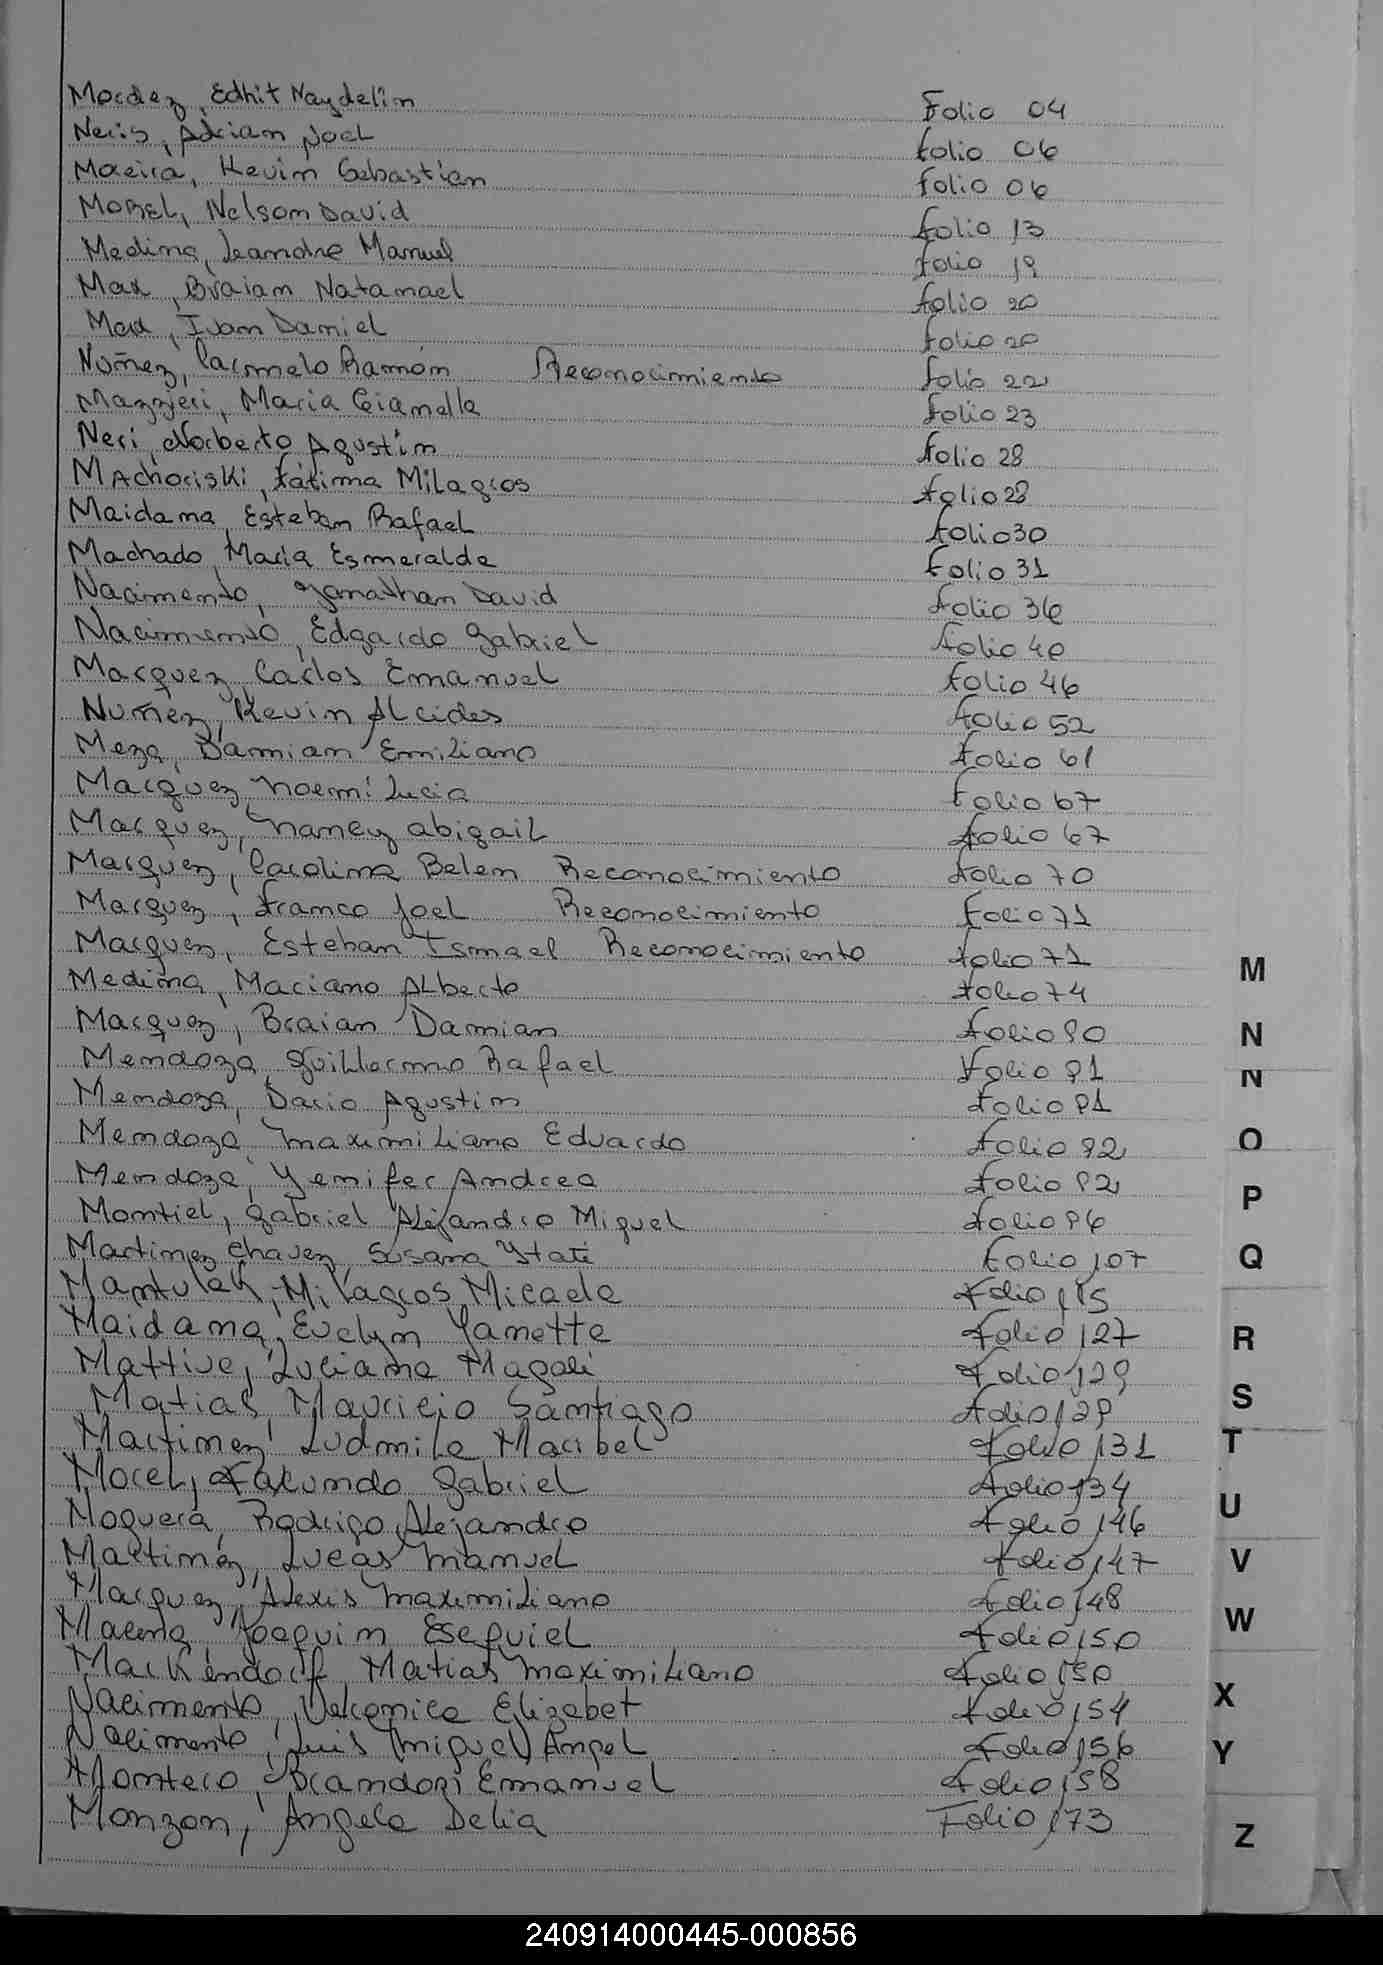 Mocdez, Edhit Naydelin Folio 04
Neris, Adrian Noel folio 06
Maeira, Kevin Sebastian folio 06
MoREL, Nelson David folio 13
Medina, Leandro Manuel folio 19
Max, Braian Natanael folio 20
Max, Ivan Daniel folio 20
Nuñez, Carmelo Ramón Reconocimiento folio 22
Mazzieri, Maria Gianella folio 23
Neri, Norberto Agustin folio 28
MAchoriski, Fátima Milagros folio 28
Maidana, Esteban Rafael folio 30
Machado, Maria Esmeralda folio 31
Nacimento, Jonathan David folio 36
Nacimento, Edgardo Gabriel folio 40
Marquez, Carlos Emanuel folio 46
Nuñez, Kevin Alcides folio 52
Meza, Damian Emiliano folio 61
Marquez, Noemi Lucia folio 67
Marquez, Nancy abigail folio 67
Marquez, Carolina Belen Reconocimiento folio 70
Marquez, Franco Joel Reconocimiento folio 71
Marquez, Esteban Ismael Reconocimiento folio 71
Medina, Mariano Alberto folio 74
Marquez, Braian Damian folio 80
Mendoza, Guillermo Rafael Folio 81
Mendoza, Dario Agustin folio 81
Mendoza Maximiliano Eduardo folio 82
Mendoza, Yenifer Andrea folio 82
Montiel, Gabriel Alejandro Miguel folio 86
Martinez Chavez, Susana Itati folio 107
Mantulak, Milagros Micaela Folio 115
Maidana, Evelyn Yanette folio 127
Mattive, Luciana Magali Folio 129
Matias, Mauricio Santiago folio 129
Martinez, Ludmila Maribel folio 131
Morel, Facundo Gabriel folio 134
Noguera, Rodrigo Alejandro folio 146
Martinez, Lucas Manuel folio 147
Marquez, Alexis Maximiliano folio 148
Maena, Joaquin Esequiel folio 150
Mackendorff Matias Maximiliano folio 150
Nacimento, Veronica Elizabet folio 154
Nacimento, Luis Miguel Angel folio 156
Montero, Brandon Emanuel folio 158
Monzon, Angela Delia Folio 173
M
N
N
O
P
Q
R
S
T
U
V
W
X
Y
Z
240914000445-000856